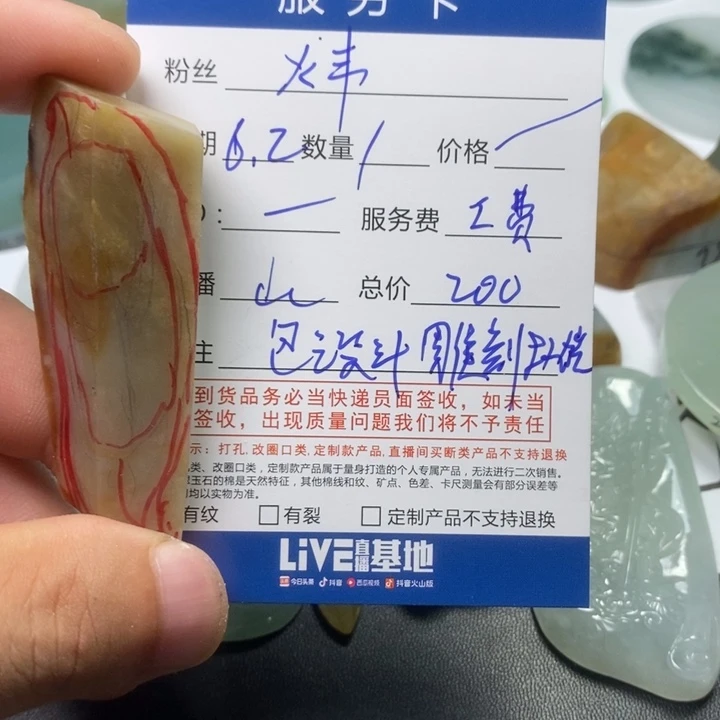 服务卡
粉丝 火韦
期 6.2 数量 1 价格
D： 服务费 工费
播 山 总价 200
主 包设计 雕刻 抛光
到货品务必当快递员面签收，如未当
签收，出现质量问题我们将不予责任
示：打孔.改圈口类.定制款产品,直播间买断类产品不支持退换
类、改圈口类，定制款产品属于量身打造的个人专属产品，无法进行二次销售。
玉石的棉是天然特征，其他棉线和纹、矿点、色差、卡尺测量会有部分误差等
均以实物为准。
有纹 有裂 定制产品不支持退换
LiVE直播基地
今日头条 抖音 西瓜视频 抖音火山版